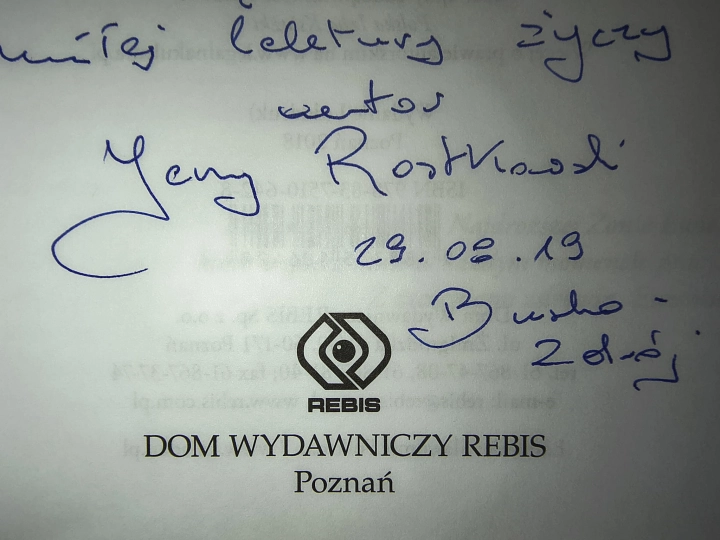 miłej lektury życzy
autor
Jerzy Rostkowski
29.08.19
Busko-
Zdrój
REBIS
DOM WYDAWNICZY REBIS
Poznań